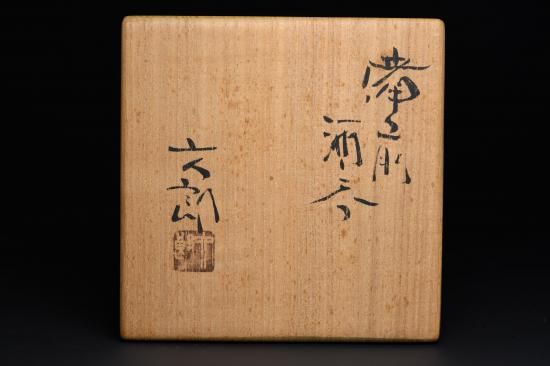 備前
酒呑
六郎